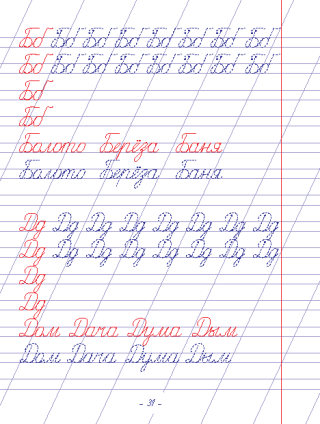 Бб Бб Бб Бб Бб Бб Бб Бб
Бб Бб Бб Бб Бб Бб Бб Бб
Бб
Бб
Болото Берёза Баня
Болото Берёза Баня
Дд Дд Дд Дд Дд Дд Дд Дд
Дд Дд Дд Дд Дд Дд Дд Дд
Дд
Дд
Дом Дача Дума Дым
Дом Дача Дума Дым
- 31 -